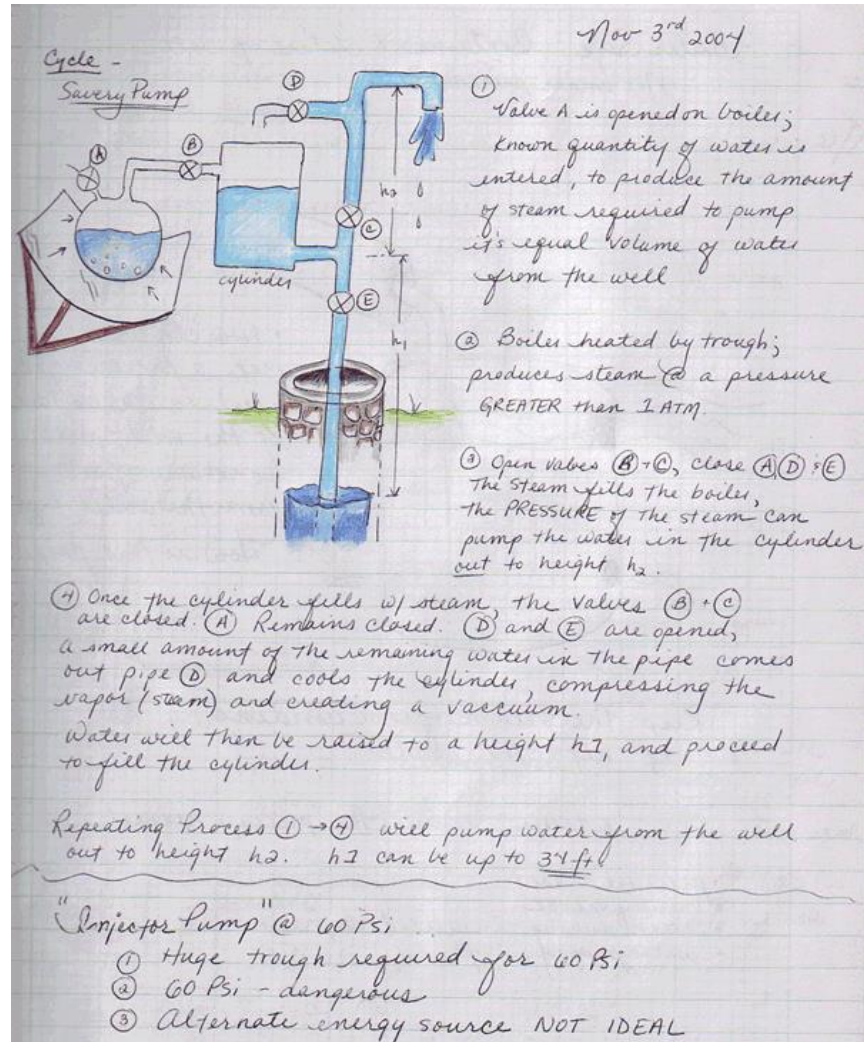 Nov 3rd 2004
Cycle -
Savery Pump
A
B
D
C
E
h2
h1
cylinder
①
Valve A is opened on boiler;
known quantity of water is
entered, to produce the amount
of steam required to pump
it's equal volume of water
from the well
② Boiler heated by trough;
produces steam @ a pressure
GREATER than 1 ATM.
③ Open valves Ⓑ + Ⓒ, close Ⓐ, Ⓓ & Ⓔ
The steam fills the boiler,
the PRESSURE of the steam can
pump the water in the cylinder
out to height h2.
④ Once the cylinder fills w/ steam, the valves Ⓑ + Ⓒ
are closed. Ⓐ Remains closed. Ⓓ and Ⓔ are opened,
a small amount of the remaining water in the pipe comes
out pipe Ⓓ and cools the cylinder, compressing the
vapor (steam) and creating a vaccuum.
Water will then be raised to a height h1, and proceed
to fill the cylinder.
Repeating Process ① → ④ will pump water from the well
out to height h2. h1 can be up to 34 ft.
"Injector Pump" @ 60 Psi
① Huge trough required for 60 Psi
② 60 Psi - dangerous
③ Alternate energy source NOT IDEAL